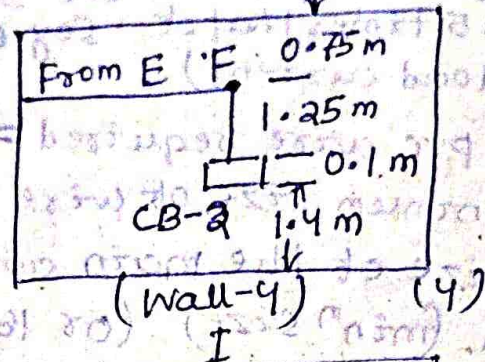 From E F 0.75m
1.25m
0.1m
CB-2 1.4m
(Wall-4) (4)
I